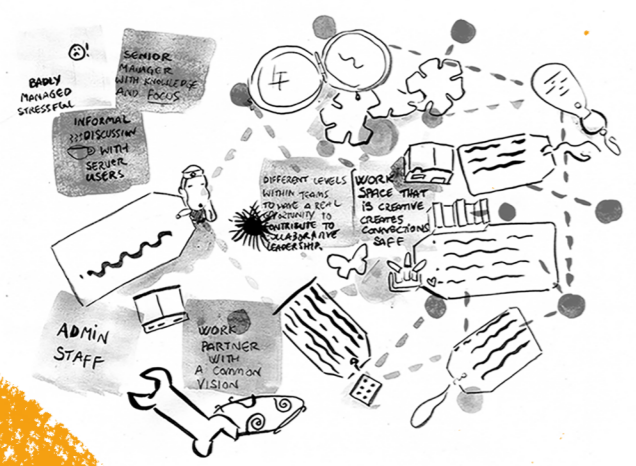 BADLY
MANAGED
STRESSFUL
SENIOR
MANAGER
WITH KNOWLEDGE
AND FOCUS
INFORMAL
DISCUSSION
WITH
SERVER
USERS
DIFFERENT LEVELS
WITHIN TEAMS
TO HAVE A REAL
OPPORTUNITY TO
CONTRIBUTE TO
COLLABORATIVE
LEADERSHIP
WORK
SPACE THAT
IS CREATIVE
CREATES
CONNECTIONS
SAFE
ADMIN
STAFF
WORK
PARTNER
WITH
A COMMON
VISION